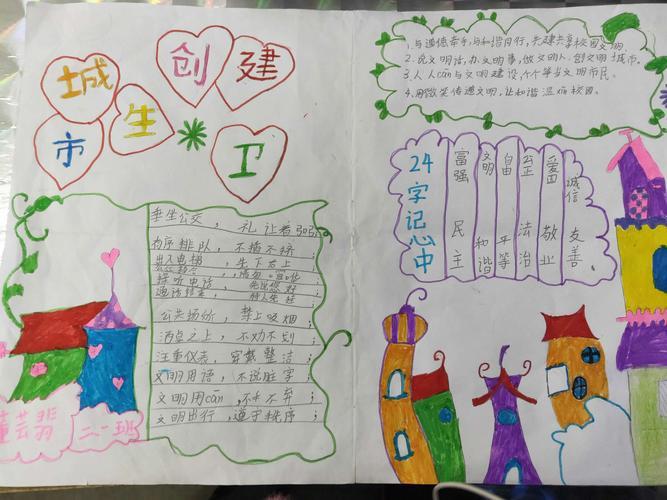 创建
卫生
城市
乘坐公交，礼让为
有序排队，不插不挤；
出入电梯，先下后上；
接听电话，
通话结束，
公共场所，禁止吸烟；
酒桌之上，不劝不
注重仪表，穿戴整洁；
文明用语，不说脏字；
文明用cān，不弃；
文明出行，遵守秩序；
芸翡
二一班
1.与道德牵手，与和谐同行，共建共享校园文明。
2.说文明话，办文明事，做文明人，创文明城市。
3.人人cān与文明建设，个个争当文明市民。
4.用微笑传递文明，让和谐温校园。
24字记心中
富强 民主
文明 和谐
自由 平等
公正 法治
爱国 敬业
诚信 友善。